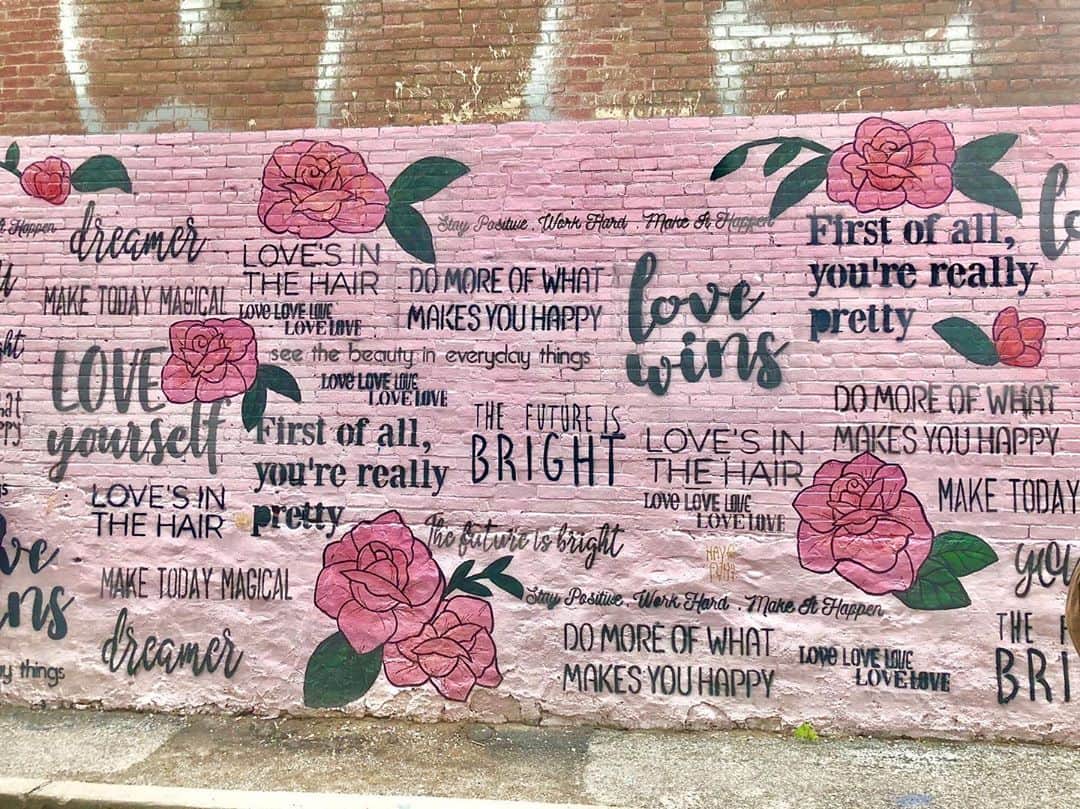 t Happen
dreamer
LOVE'S IN
THE HAIR
Stay Positive . Work Hard . Make It Happen
First of all,
you're really
pretty
MAKE TODAY MAGICAL
LOVE LOVE LOVE
LOVE LOVE
DO MORE OF WHAT
MAKES YOU HAPPY
love
wins
see the beauty in everyday things
LOVE LOVE LOVE
LOVE LOVE
LOVE
yourself
First of all,
you're really
pretty
THE FUTURE IS
BRIGHT
LOVE'S IN
THE HAIR
LOVE LOVE LOVE
LOVE LOVE
DO MORE OF WHAT
MAKES YOU HAPPY
LOVE'S IN
THE HAIR
MAKE TODAY
The future is bright
MAKE TODAY MAGICAL
you
ve
ns
dreamer
Stay Positive . Work Hard . Make It Happen
DO MORE OF WHAT
MAKES YOU HAPPY
LOVE LOVE LOVE
LOVE LOVE
THE F
BRI
y things